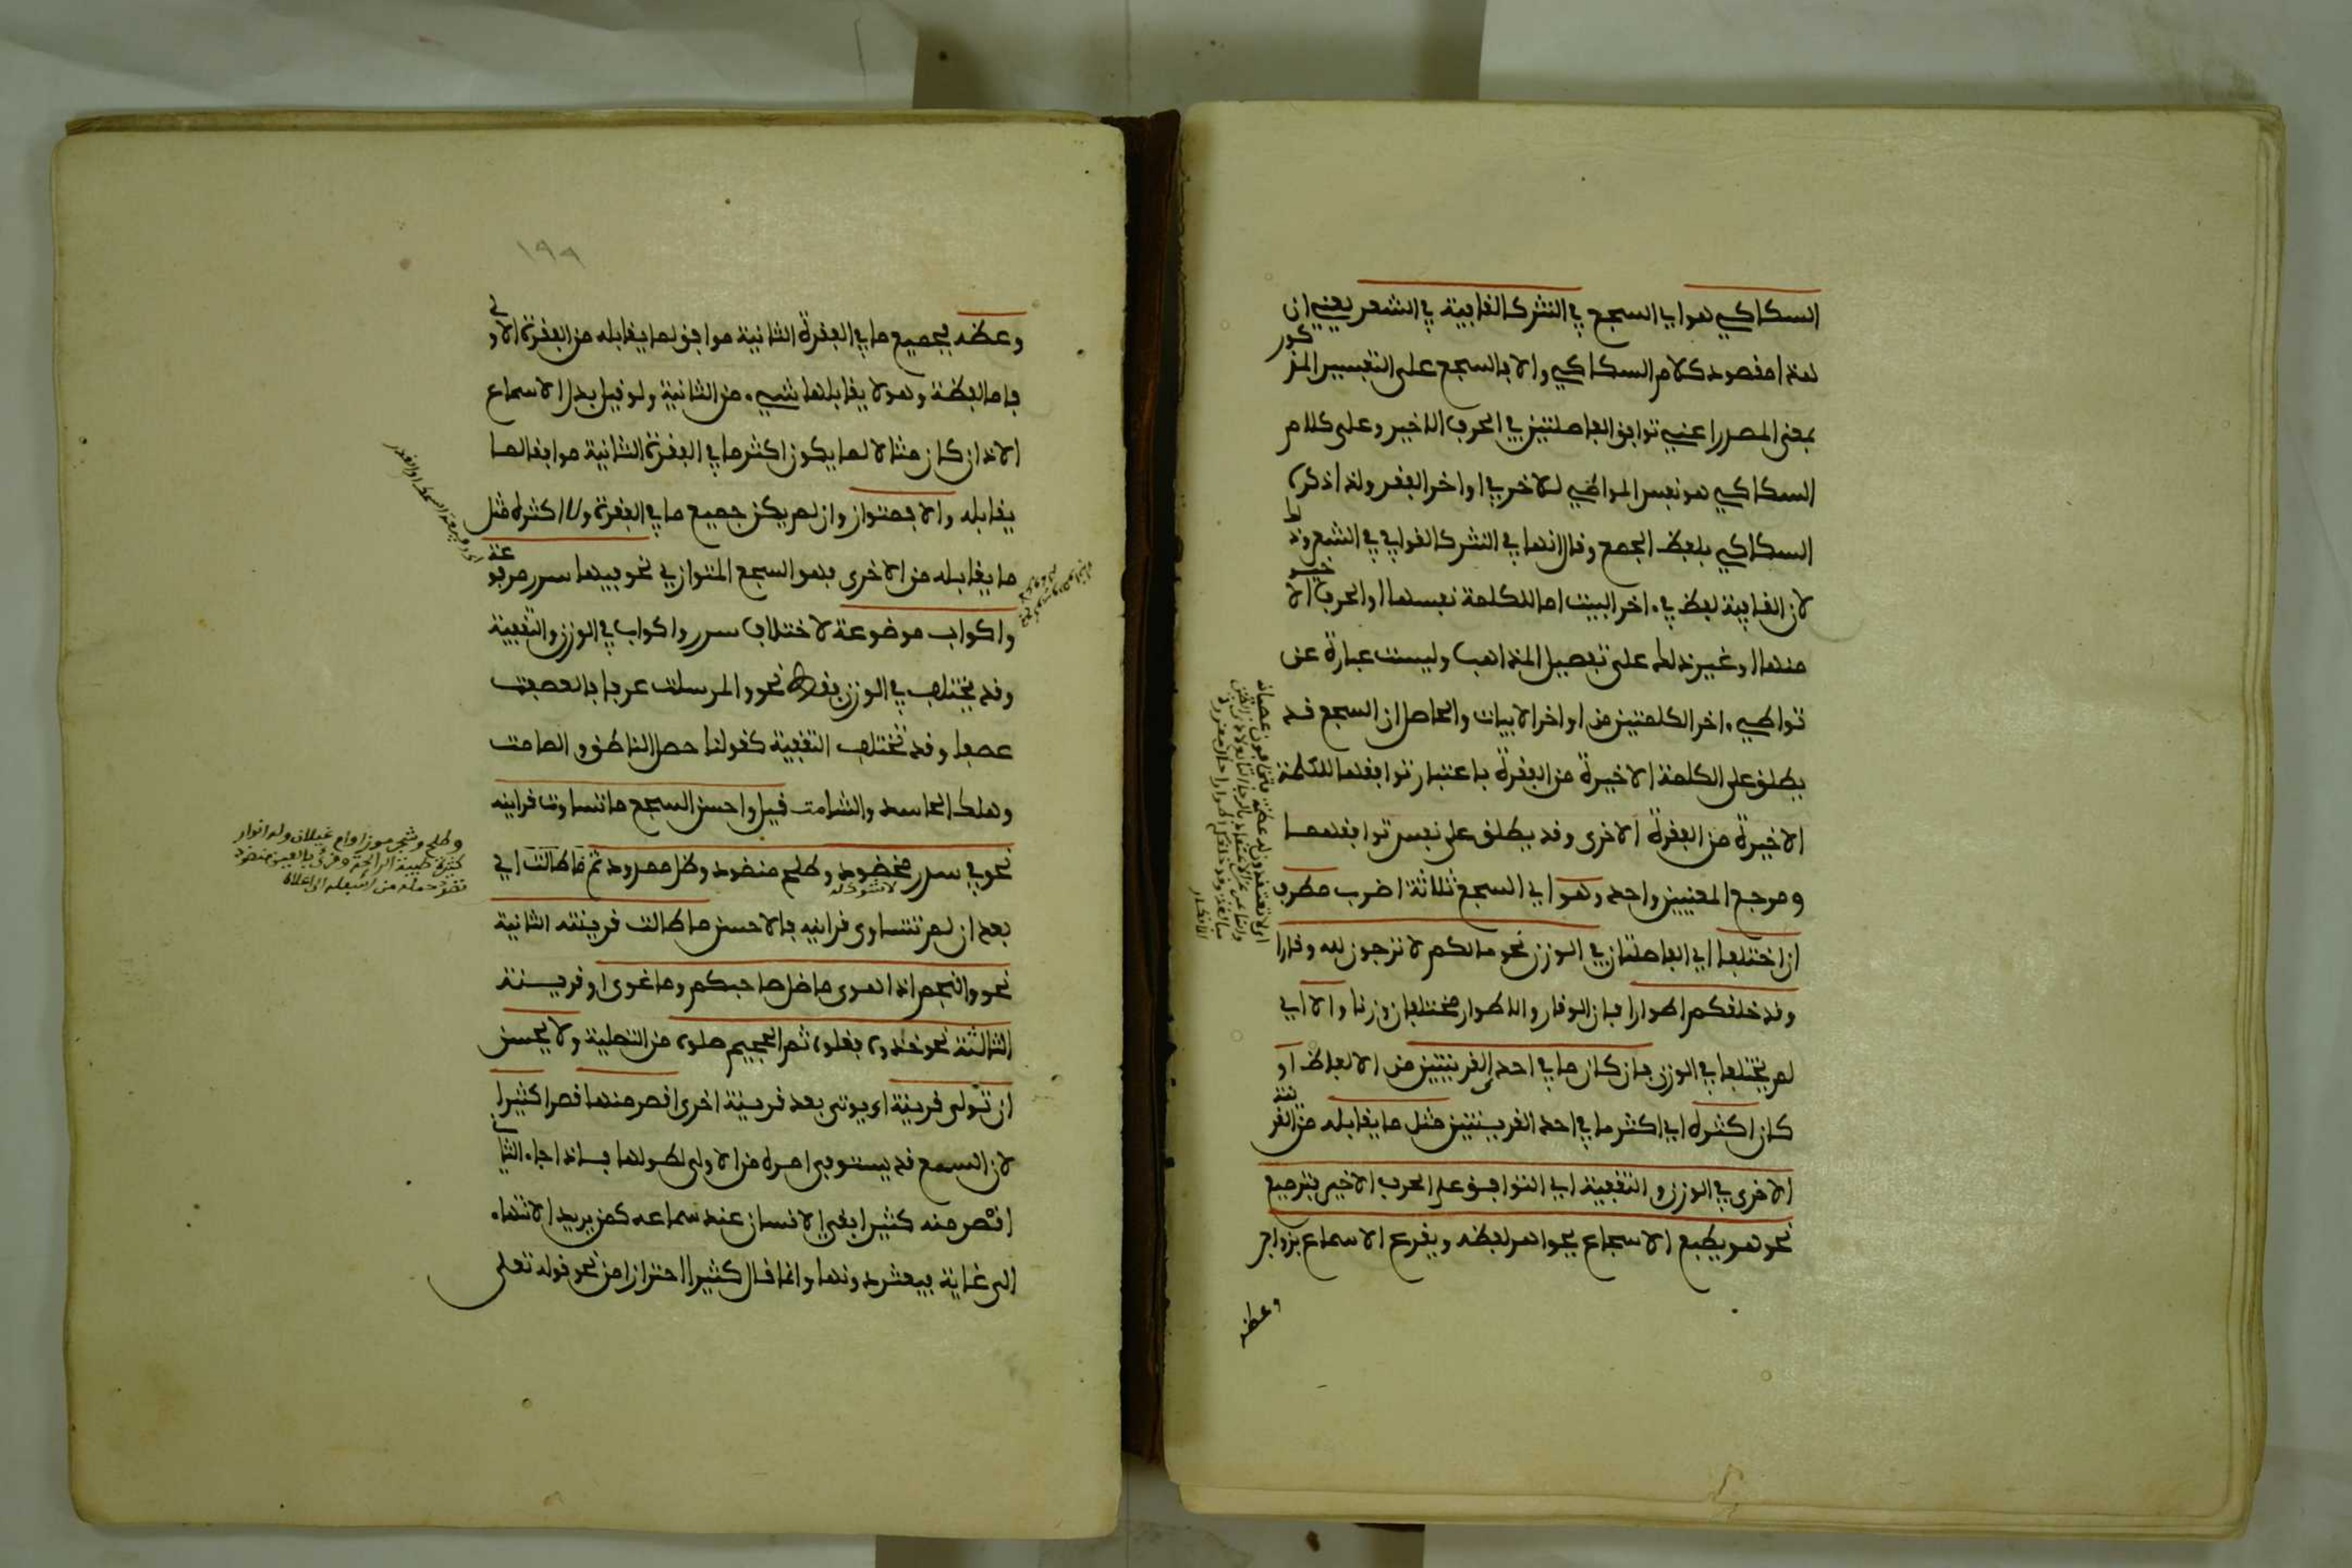 السكاكي هو اي السجع في النثر كالقافية في الشعر يعني ان
هذا مقصود كلام السكاكي والا فالسجع على التفسير المذكور
بمعنى المصدر اعني توافق الفاصلتين في الحرف الاخير وعلى كلام
السكاكي هو نفس المواطي للاخر في اواخر الفقر ولذا ذكره
السكاكي بلفظ الجمع وقال انها في النثر كالقوافي في الشعر وذلك
لان القافية لفظ في ءاخر البيت اما الكلمة نفسها او الحرف الاخير
منها او غير ذلك على تفصيل المذاهب وليست عبارة عن
تواطي ءاخر الكلمتين من اواخر الابيات والحاصل ان السجع قد
يطلق على الكلمة الاخيرة من الفقرة باعتبار توافقها للكلمة
الاخيرة من الفقرة الاخرى وقد يطلق على نفس توافقهما
ومرجع المعنيين واحد وهو اي السجع ثلاثة اضرب مطرف
ان اختلفا اي الفاصلتان في الوزن نحو مالكم لا ترجون لله وقارا
وقد خلقكم اطوارا فان الوقار والاطوار مختلفان وزنا والا اي
لم يختلفا في الوزن فان كان ما في احدى القرينتين من الالفاظ او
كان اكثره اي اكثر ما في احد القرينتين مثل ما يقابله من القرينة
الاخرى في الوزن والتقفية اي التوافق على الحرف الاخير فترصيع
نحو هو يطبع الاسجاع بجواهر لفظه ويقرع الاسماع بزواجر
وعظه
١٩٩
وعظه فجميع ما في الفقرة الثانية موافق لما يقابله من الفقرة الاولى
فاما لفظة وهو لا يقابلها شيء من الثانية ولو قيل بدل الاسماع
الاذان كان مثالا لما يكون اكثر ما في الفقرة الثانية موافقا لما
يقابله والا فمتواز وان لم يكن جميع ما في الفقرة ولا اكثره مثل
ما يقابله من الاخرى فهو السجع المتوازي نحو فيها سرر مرفوعة
واكواب موضوعة لاختلاف سرر واكواب في الوزن والتقفية
وقد يختلف في الوزن فقط نحو والمرسلت عرفا فالعصفت
عصفا وقد تختلف التقفية كقولنا حصل الناطق والصامت
وهلك الحاسد والشامت قيل واحسن السجع ما تساوت قراينه
نحو في سدر مخضود وطلح منضود وظل ممدود ثم ما طالت اي
لا شوك له
بعد ان لم تتساوى قراينه فالاحسن ما طالت قرينته الثانية
نحو والنجم اذا هوى ما ضل صاحبكم وما غوى او قرينته
الثالثة نحو خذوه فغلوه ثم الجحيم صلوه من التصلية ولا يحسن
ان تولى قرينة اي يوتى بعد قرينة اخرى اقصر منها قصرا كثيرا
لان السمع قد يستوفي امده من الاولى لطولها فاذا جاء الثاني
اقصر منه كثيرا يبقى الانسان عند سماعه كمن يريد الانتهاء
الى غاية فيعثر دونها وانما قال كثيرا احترازا من نحو قوله تعلى
وطلح وشجر موز او ام غيلان وله انوار
كثيرة طيبة الرائحة وقرئ بالعين منضود
نضد حمله من اسفله الى اعلاه